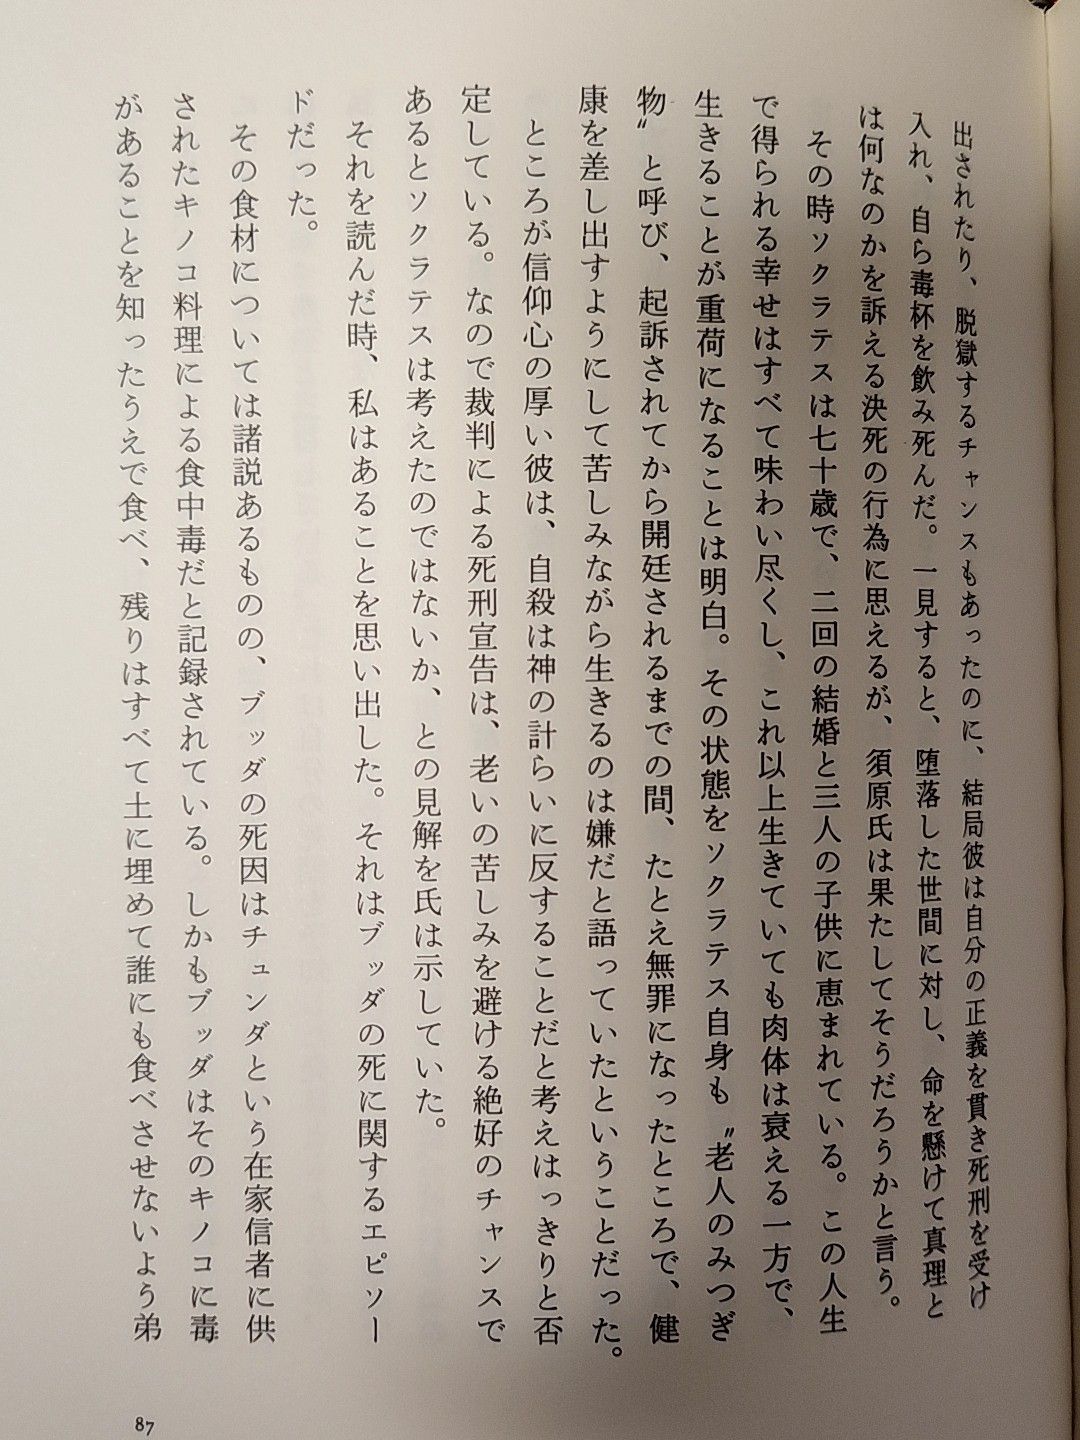 出されたり、脱獄するチャンスもあったのに、結局彼は自分の正義を貫き死刑を受け
入れ、自ら毒杯を飲み死んだ。一見すると、堕落した世間に対し、命を懸けて真理と
は何なのかを訴える決死の行為に思えるが、須原氏は果たしてそうだろうかと言う。
その時ソクラテスは七十歳で、二回の結婚と三人の子供に恵まれている。この人生
で得られる幸せはすべて味わい尽くし、これ以上生きていても肉体は衰える一方で、
生きることが重荷になることは明白。その状態をソクラテス自身も〝老人のみつぎ
物〟と呼び、起訴されてから開廷されるまでの間、たとえ無罪になったところで、健
康を差し出すようにして苦しみながら生きるのは嫌だと語っていたということだった。
ところが信仰心の厚い彼は、自殺は神の計らいに反することだと考えはっきりと否
定している。なので裁判による死刑宣告は、老いの苦しみを避ける絶好のチャンスで
あるとソクラテスは考えたのではないか、との見解を氏は示していた。
それを読んだ時、私はあることを思い出した。それはブッダの死に関するエピソー
ドだった。
その食材については諸説あるものの、ブッダの死因はチュンダという在家信者に供
されたキノコ料理による食中毒だと記録されている。しかもブッダはそのキノコに毒
があることを知ったうえで食べ、残りはすべて土に埋めて誰にも食べさせないよう弟
87